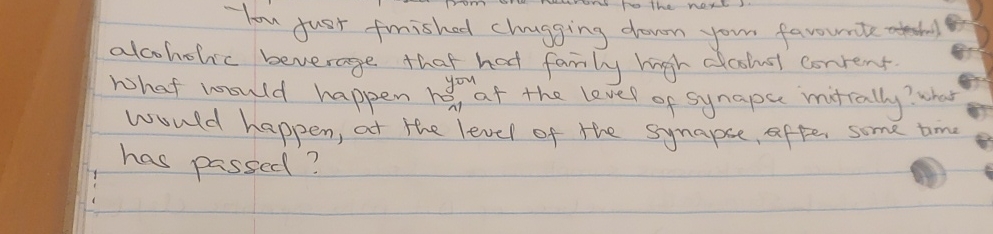 from one neurons to the next).
You just finished chugging down your favourite
alcoholic beverage that had fairly high alcohol content.
What would happen to you, at the level of synapse initially? what
would happen, at the level of the synapse, after some time
has passed?